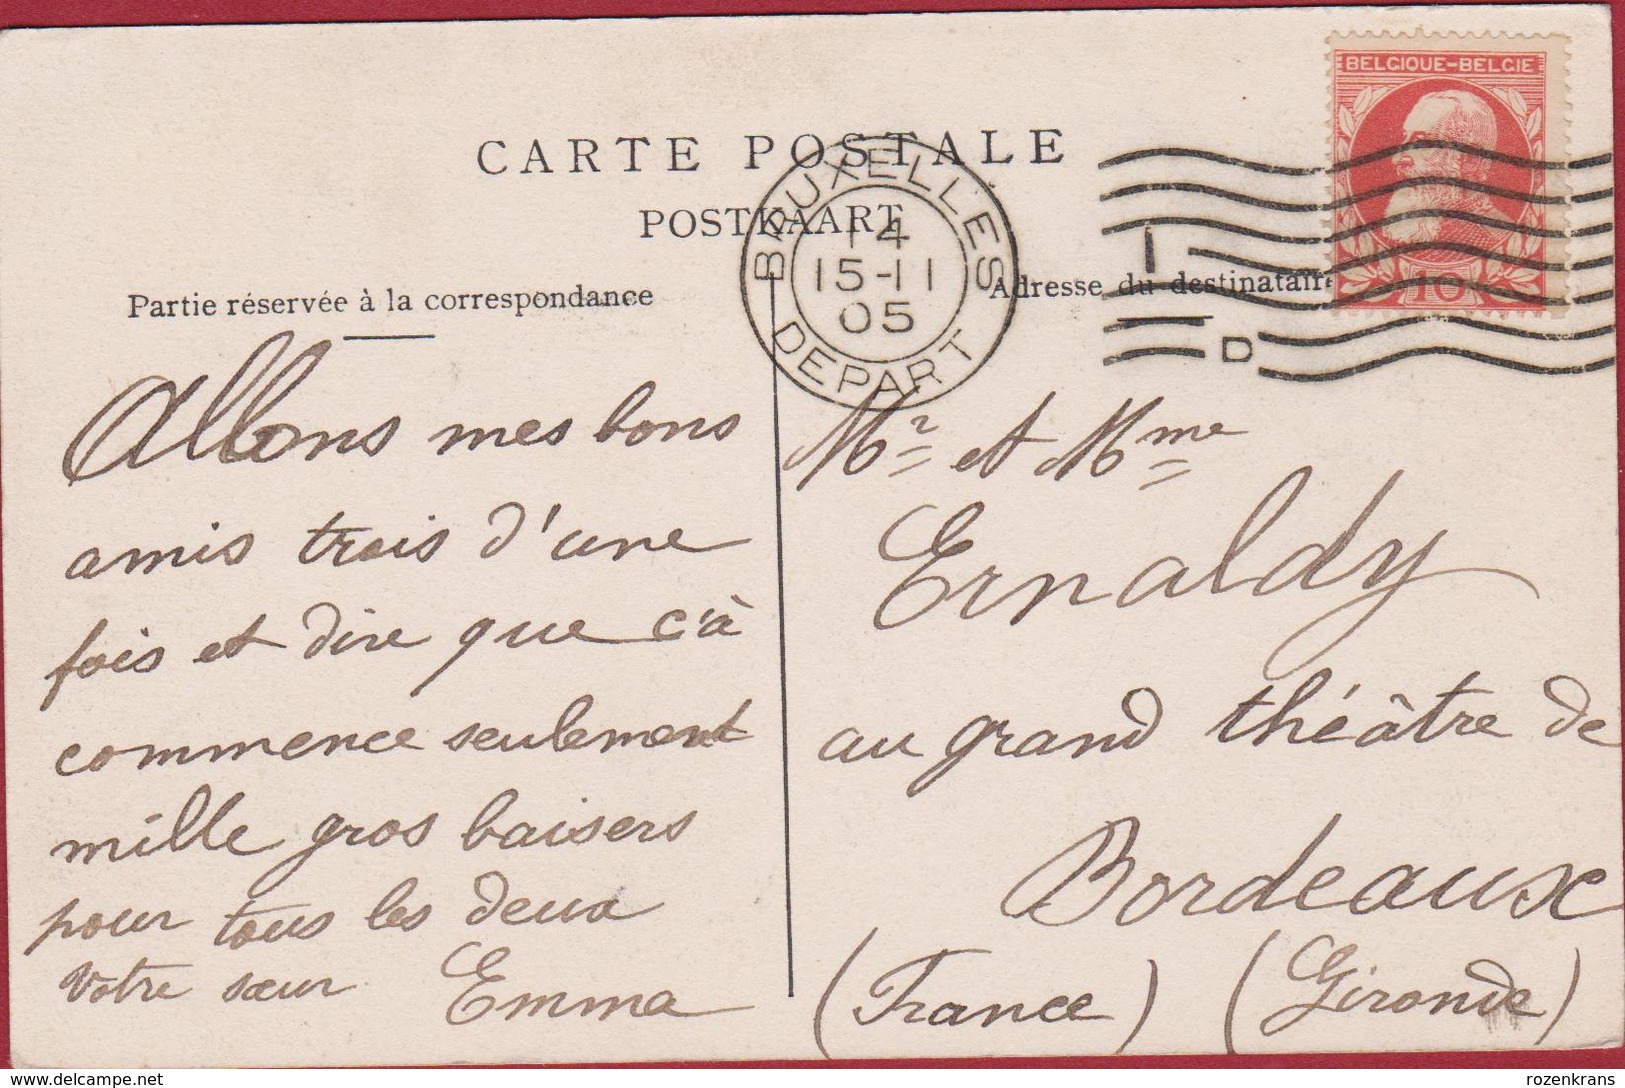 BELGIQUE-BELGIE
10
CARTE POSTALE
POSTKAART
BRUXELLES
14
15-11
05
DEPART
1
D
Partie réservée à la correspondance
Adresse du destinataire
Allons mes bons
amis trois d'une
fois et dire que c'à
commence seulement
mille gros baisers
pour tous les deux
Votre sœur Emma
Mr et Mme
Ernaldy
au grand théâtre de
Bordeaux
(France) (Gironde)
www.delcampe.net
rozenkrans